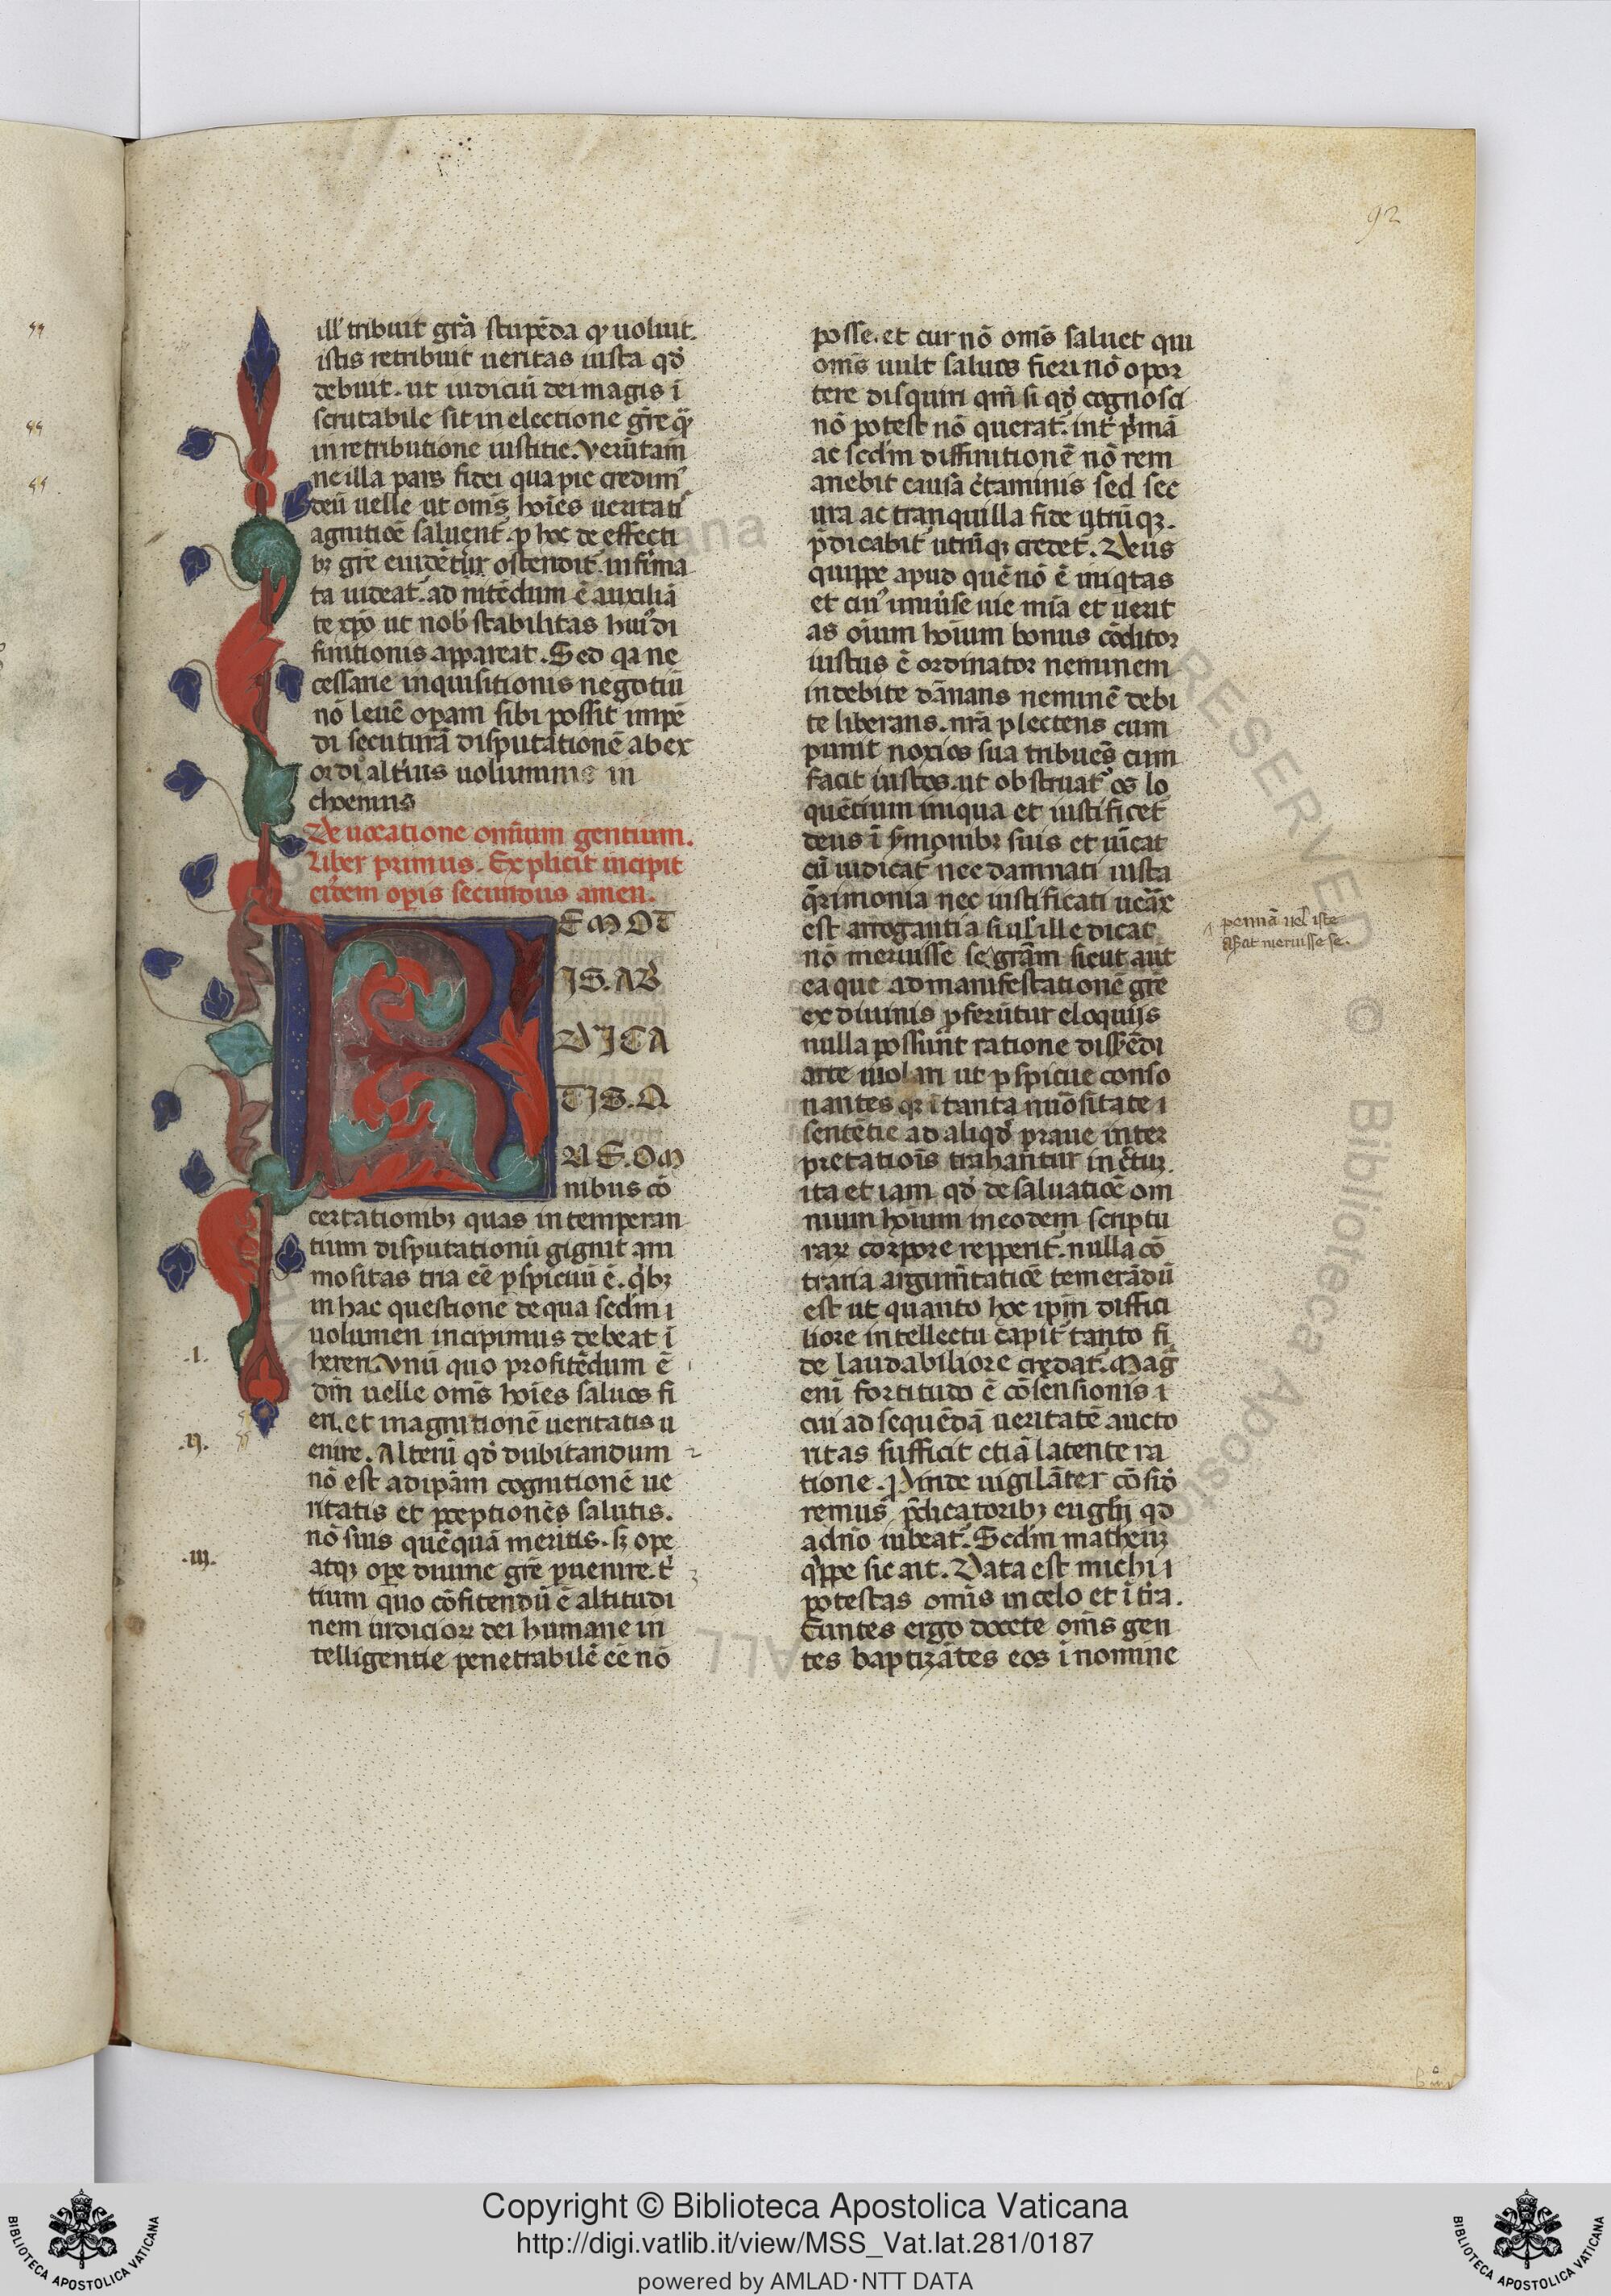 92
ill' tribuit grã stupẽda qͥ uoluit.
istis retribuit ueritas iusta qď
debuit. ut iudiciũ dei magis ĩ
scrutabile sit in electione grẽ qͣ
in retributione iustitie. Verũtam̃
ne illa pars fidei qua pie credim᷒
deũ uelle ut om̃s hoĩes ueritati᷒
agnitiõe saluent᷑. p hoc de effecti
bꝫ grẽ euidẽtur ostendit᷑ infirma
ta uideat᷑. ad nitẽdum ẽ auxiliã
te xp̃o ut nob̃ stabilitas hui᷒ di
finitionis appareat. Sed qa ne
cessarie inquisitionis negotiũ
nõ leuẽ oꝑam sibi possit impẽ
di secuturã disputationẽ ab ex
ordio alti᷒us uoluminis in
choemus
De uocatione omnium gentium.
Liber primus. Explicit incipit
ei᷒dem oꝑis secundus amen.
REMOT
IS. AB
DICA
TIS. Q
UE. OM
nibus cõ
certationibꝫ quas intemperan
tium disputationũ gignit ani
mositas tria eẽ ꝑspicuũ ẽ. qͥbꝫ
in hac questione de qua sedm̃ i
uolumen incipimus debeat ĩ
hereri. Vnũ quo profitẽdum ẽ
.I.
dm̃ uelle om̃s hoĩes saluos fi
eri. et in agnitionẽ ueritatis u
.II.
enire. Alterũ qď dubitandum
nõ est ad ipãm cognitionẽ ue
ritatis et ꝑceptionẽs salutis.
nõ suis quẽquã meritis. sꝫ ope
.III.
atqꝫ oꝑe diuine grẽ ꝑuenire. t᷑
tium quo cõfitendũ ẽ altitudi
nem iudicioꝝ dei humane in
telligentie penetrabilẽ eẽ nõ
posse. et cur nõ om̃s saluet qui
om̃s uult saluos fieri nõ opor
tere disquiri qm̃ si qď cognosci
nõ potest nõ querat᷑. int᷑ pͥmã
ac sedm̃ diffinitionẽ nõ rem
anebit causa c᷑taminis sed sec
ura ac tranquilla fide utrũqꝫ.
p̃dicabit᷑ utrũqꝫ credet᷑. Deus
quippe apud quẽ nõ ẽ iniqͥtas
et cui᷒ uniũse uie mĩa et uerit
as oĩum hoĩum bonus cõditor
iustus ẽ ordinator neminem
indebite dãnans neminẽ debi
te liberans. nrã plectens cum
punit noxios sua tribuẽs cum
facit iustos. ut obstruat᷑ os lo
quẽtium iniqua et iustificet᷑
deus ĩ s᷑monibꝫ suis et uĩcat
cũ iudicat᷑ nec damnati iusta
qͥrimonia nec iustificati uerax
est arrogantia si ul᷑ ille dicat
nõ meruisse se grãm sicut aut᷑
ea que ad manifestationẽ grẽ
ex diuinis ꝓferũtur eloquijs
nulla possunt ratione dissẽdi
arte uiolari ut ꝑspicue conso
nantes qꝫ ĩ tanta nũositate i
sentẽtie ad aliqď praue inter
pretatiõis trahantur inc᷑tuꝫ.
ita et iam qď de saluatiõe om
nium hoĩum in eodem scriptu
raꝝ corpore repperit᷑. nulla cõ
traria argumẽtatiõe temerãdũ
est ut quanto hoc ipm̃ diffici
liore intellectu capit᷑ tanto fi
de laudabiliore credat᷑. Mag̃
enĩ fortitudo ẽ cõsensionis i
cui ad sequẽdã ueritatẽ aucto
ritas sufficit etiã latente ra
tione. Proinde uigilãter cõsid
remus p̃dicatoribꝫ eug̃lij qď
a dño iubeat᷑. Sedm̃ matheuꝫ
qͥppe sic ait. Data est michi i
potestas om̃is in celo et ĩ t᷑ra.
Euntes ergo docete om̃s gen
tes baptizãtes eos ĩ nomine
Copyright © Biblioteca Apostolica Vaticana
http://digi.vatlib.it/view/MSS_Vat.lat.281/0187
powered by AMLAD·NTT DATA
BIBLIOTECA APOSTOLICA VATICANA
BIBLIOTECA APOSTOLICA VATICANA